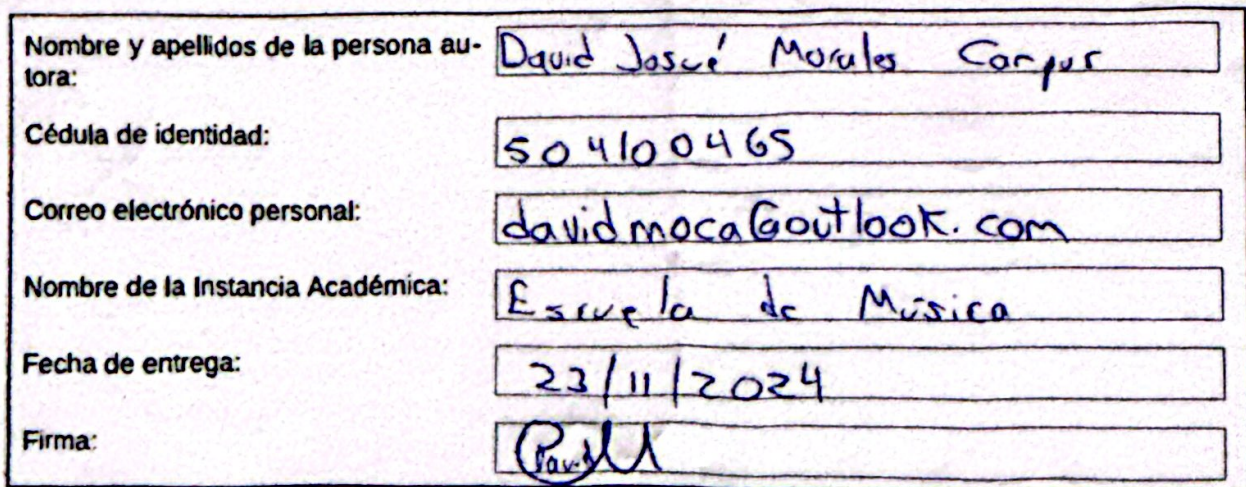 Nombre y apellidos de la persona au-
tora:
David Josué Morales Campos
Cédula de identidad:
504100465
Correo electrónico personal:
davidmoca@outlook.com
Nombre de la Instancia Académica:
Escuela de Música
Fecha de entrega:
23/11/2024
Firma: